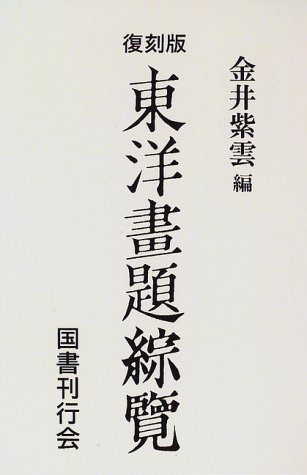 復刻版
金井紫雲 編
東洋畫題綜覽
国書刊行会